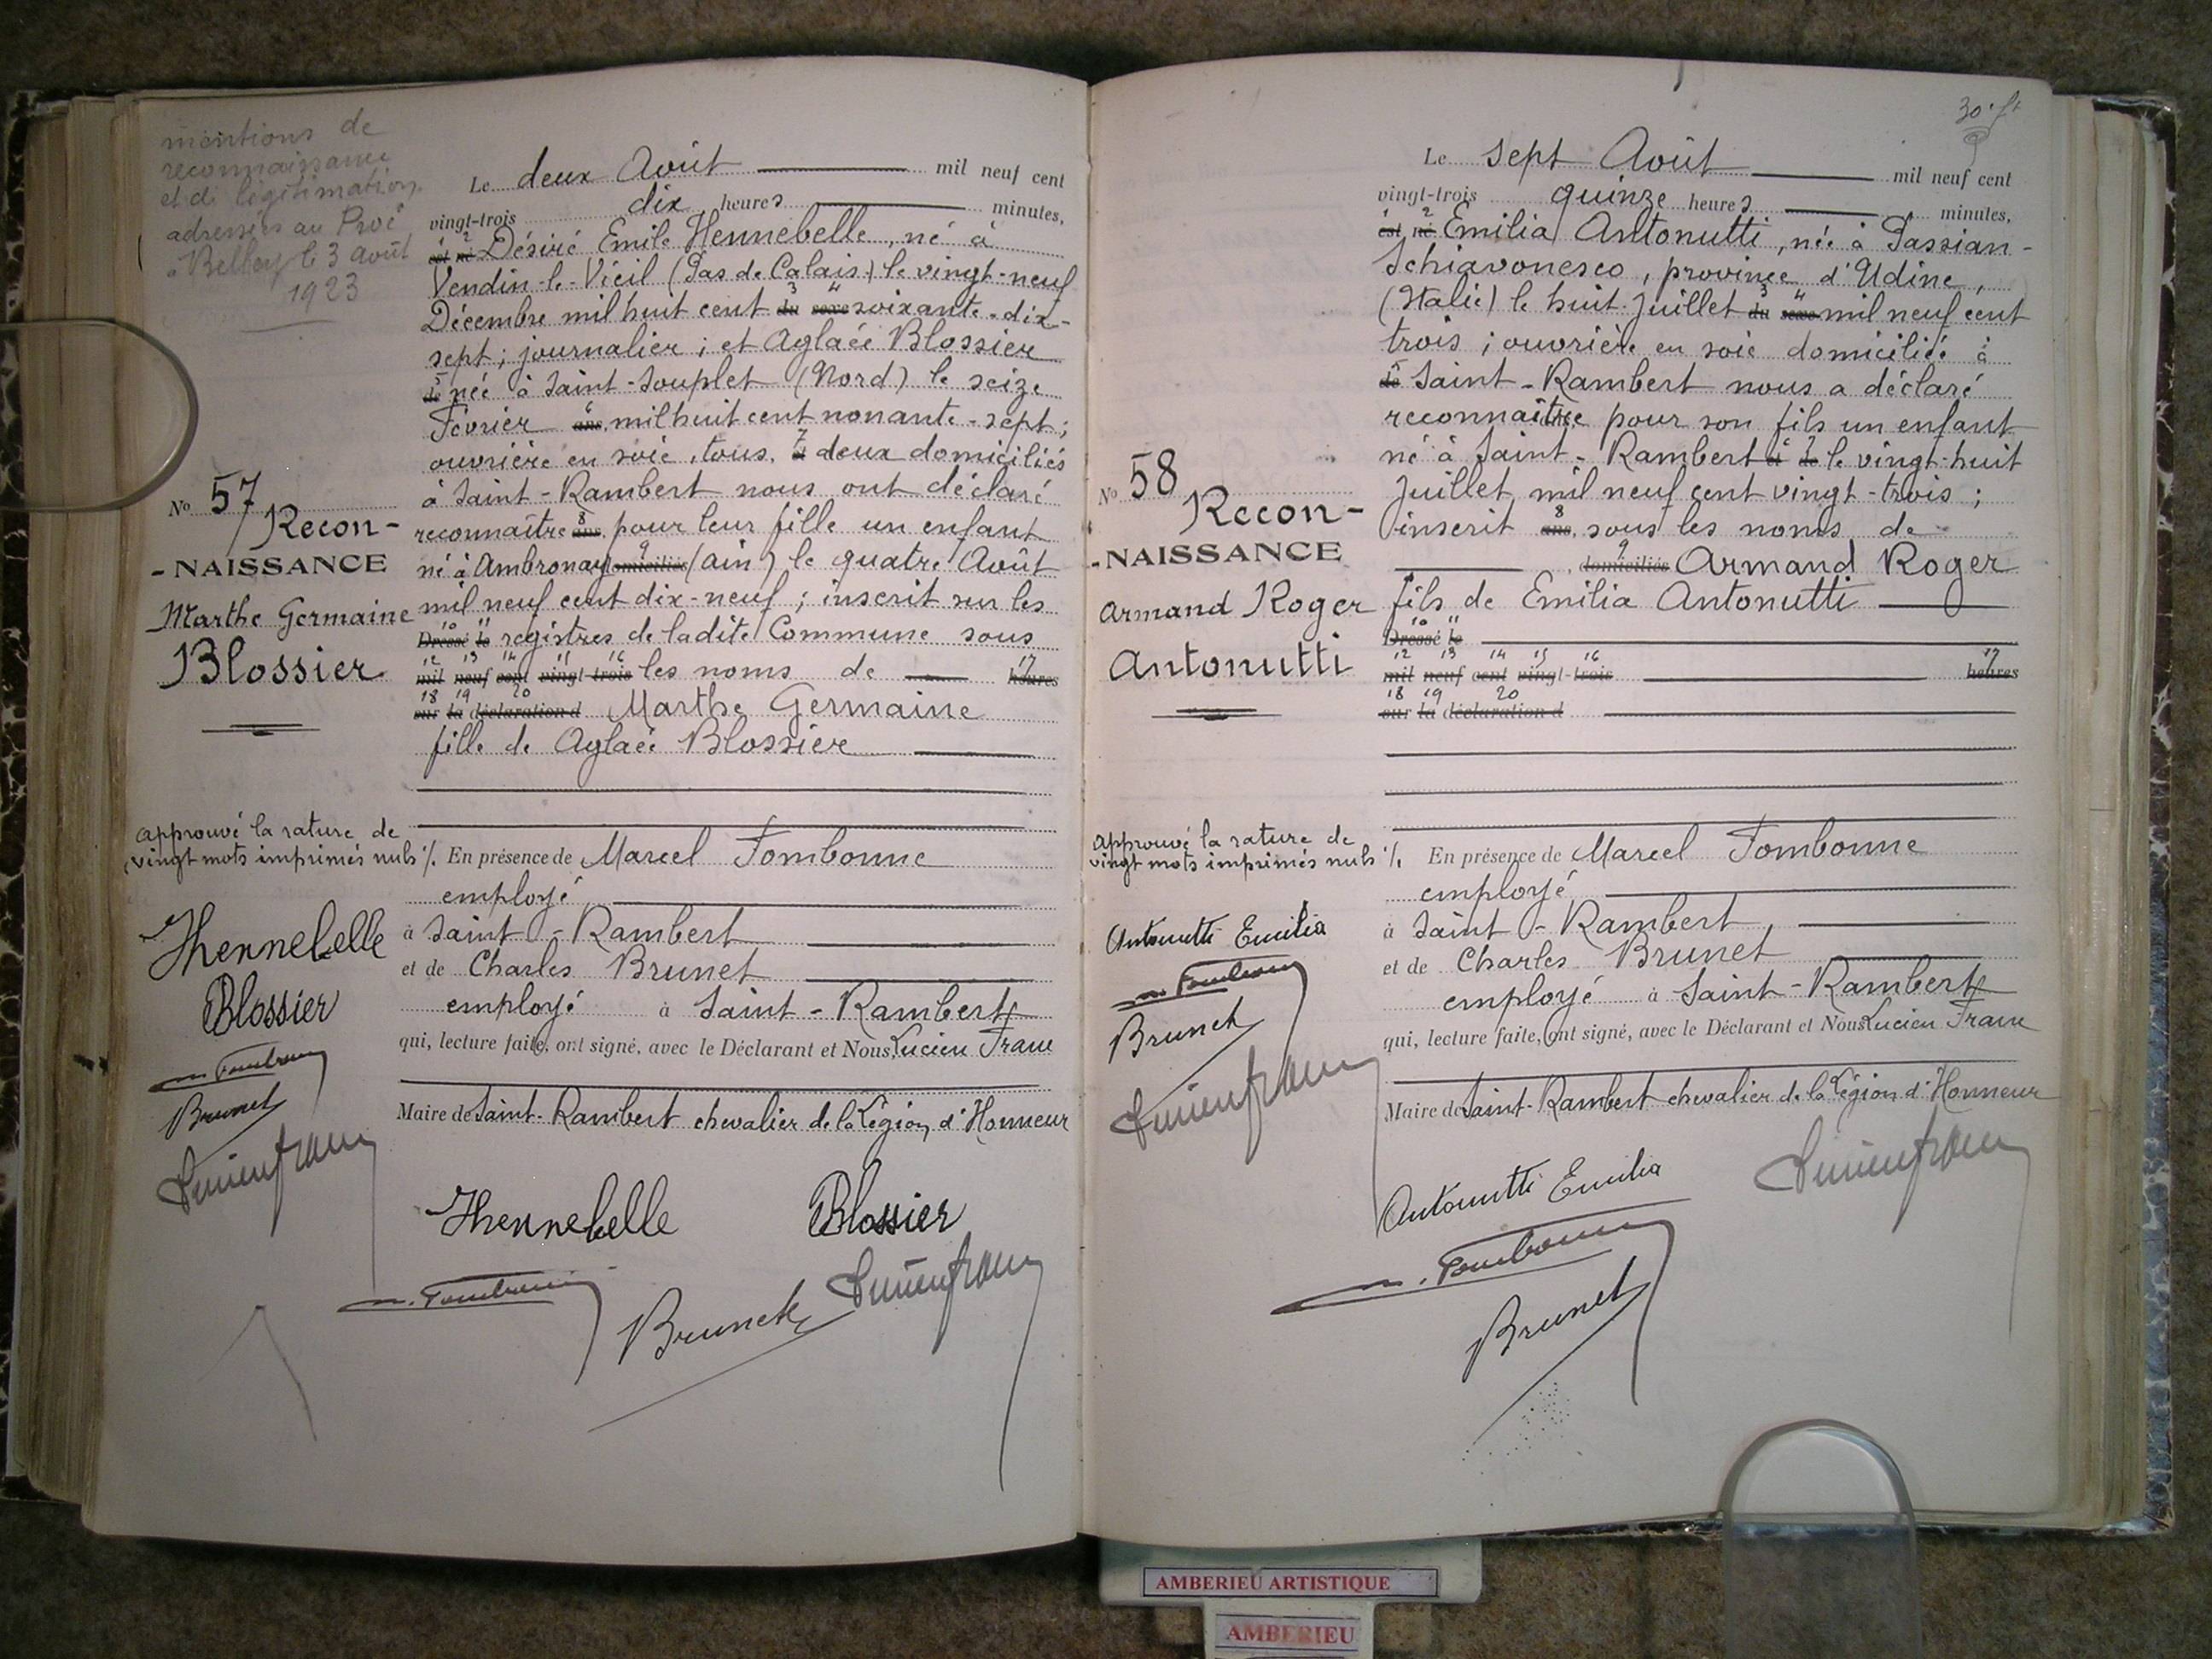 mentions de
reconnaissance
et de légitimation
adressées au Proc
à Belley le 3 août
1923
Le deux Août mil neuf cent
vingt-trois dix heures minutes,
est né Désiré Emile Hennebelle, né à
Vendin-le-Vieil (Pas de Calais) le vingt-neuf
Décembre mil huit cent du sexe soixante-dix-
sept; journalier; et Aglaée Blossier
de née à Saint-Souplet (Nord) le seize
Février ans, mil huit cent nonante-sept;
ouvrière en soie, tous, à deux domiciliés
à Saint-Rambert nous ont déclaré
reconnaître ans, pour leur fille un enfant
né à Ambronay domiciliés (Ain) le quatre Août
mil neuf cent dix-neuf; inscrit sur les
Dressé le registres de ladite Commune sous
mil neuf cent vingt-trois les noms de heures
sur la déclaration d Marthe Germaine
fille de Aglaée Blossier
No 57 Recon-
-NAISSANCE
Marthe Germaine
Blossier
approuvé la rature de
vingt mots imprimés nuls ./.
En présence de Marcel Tombonne
employé
à Saint-Rambert
et de Charles Brunet
employé à Saint-Rambert
qui, lecture faite, ont signé, avec le Déclarant et Nous, Lucien Franc
Maire de Saint-Rambert chevalier de la Légion d'Honneur
Hennebelle
Blossier
m. Tombonne
Brunet
Lucien franc
Hennebelle Blossier
m. Tombonne
Brunet
Lucien franc
Le sept Août mil neuf cent
vingt-trois quinze heures minutes,
est né Emilia Antonutti, née à Passian-
Schiavonesco, province d'Udine,
(Italie) le huit Juillet du sexe mil neuf cent
trois; ouvrière en soie domiciliée à
de Saint-Rambert nous a déclaré
reconnaître pour son fils un enfant
né à Saint-Rambert à de le vingt-huit
Juillet, mil neuf cent vingt-trois;
inscrit ans, sous les noms de
domiciliés Armand Roger
fils de Emilia Antonutti
Dressé le
mil neuf cent vingt-trois heures
sur la déclaration d
No 58
Recon-
-NAISSANCE
Armand Roger
Antonutti
approuvé la rature de
vingt mots imprimés nuls ./.
En présence de Marcel Tombonne
employé
à Saint-Rambert
et de Charles Brunet
employé à Saint-Rambert
qui, lecture faite, ont signé, avec le Déclarant et Nous Lucien Franc
Maire de Saint-Rambert chevalier de la Légion d'Honneur
Antonutti Emilia
m. Tombonne
Brunet
Lucien franc
Antonutti Emilia
Lucien franc
m. Tombonne
Brunet
AMBERIEU ARTISTIQUE
AMBERIEU